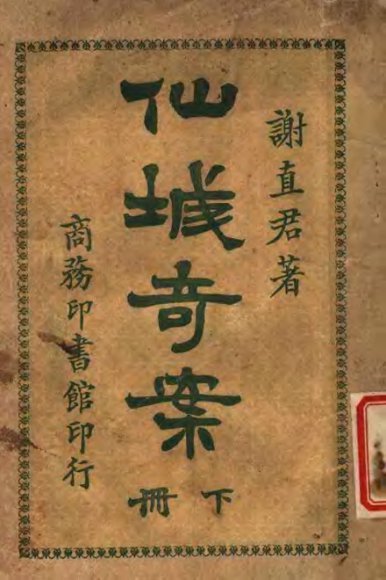 謝直君著
仙城奇案
下冊
商務印書館印行